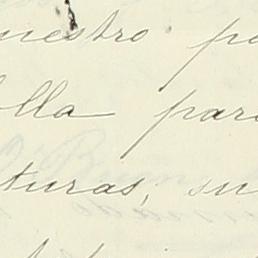 uestro po
lla para
turas, su